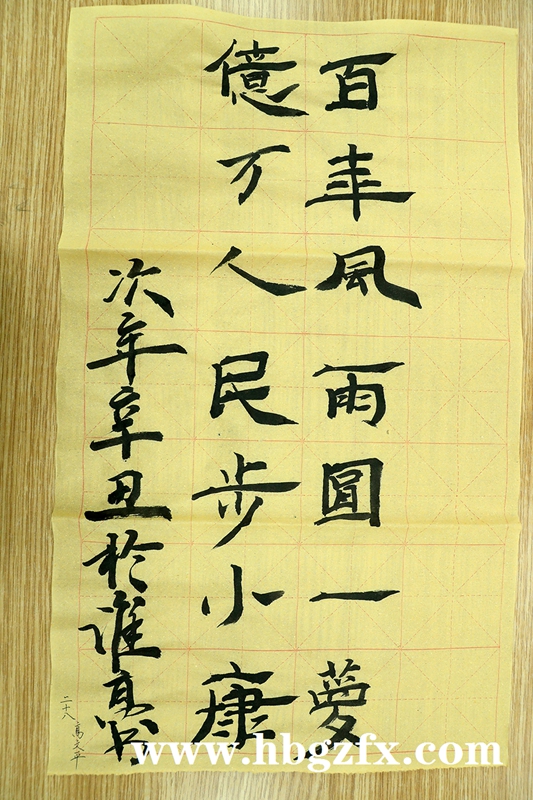 百年風雨圓一夢
億万人民步小康
次年辛丑於淮高书
二十八 高文平
www.hbgzfx.com